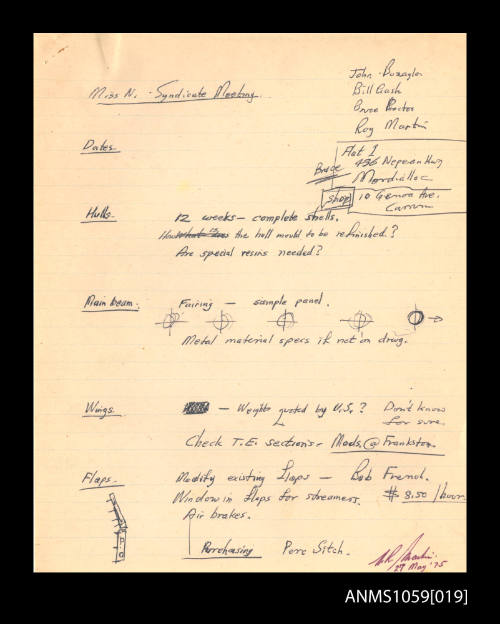 Miss N. Syndicate Meeting.
John Buzaglo
Bill Gash
Bruce Proctor
Roy Martin
Dates
Bruce
Flat 1
436 Nepean Hwy
Mordialloc
Shop
10 Genoa Ave.
Carrum
Hulls.
12 weeks – complete shells.
the hull mould to be refinished?
Are special resins needed?
Main beam.
Fairing – sample panel.
Metal material specs if not on drwg.
Wings.
– Weights quoted by U.S.? Don't know
for sure.
Check T.E. sections - Mods. @ Frankston.
Flaps.
Modify existing flaps – Bob French.
Window in flaps for streamers. $ 8.50 /hour
Air brakes.
Purchasing
27 May '75
ANMS1059[019]